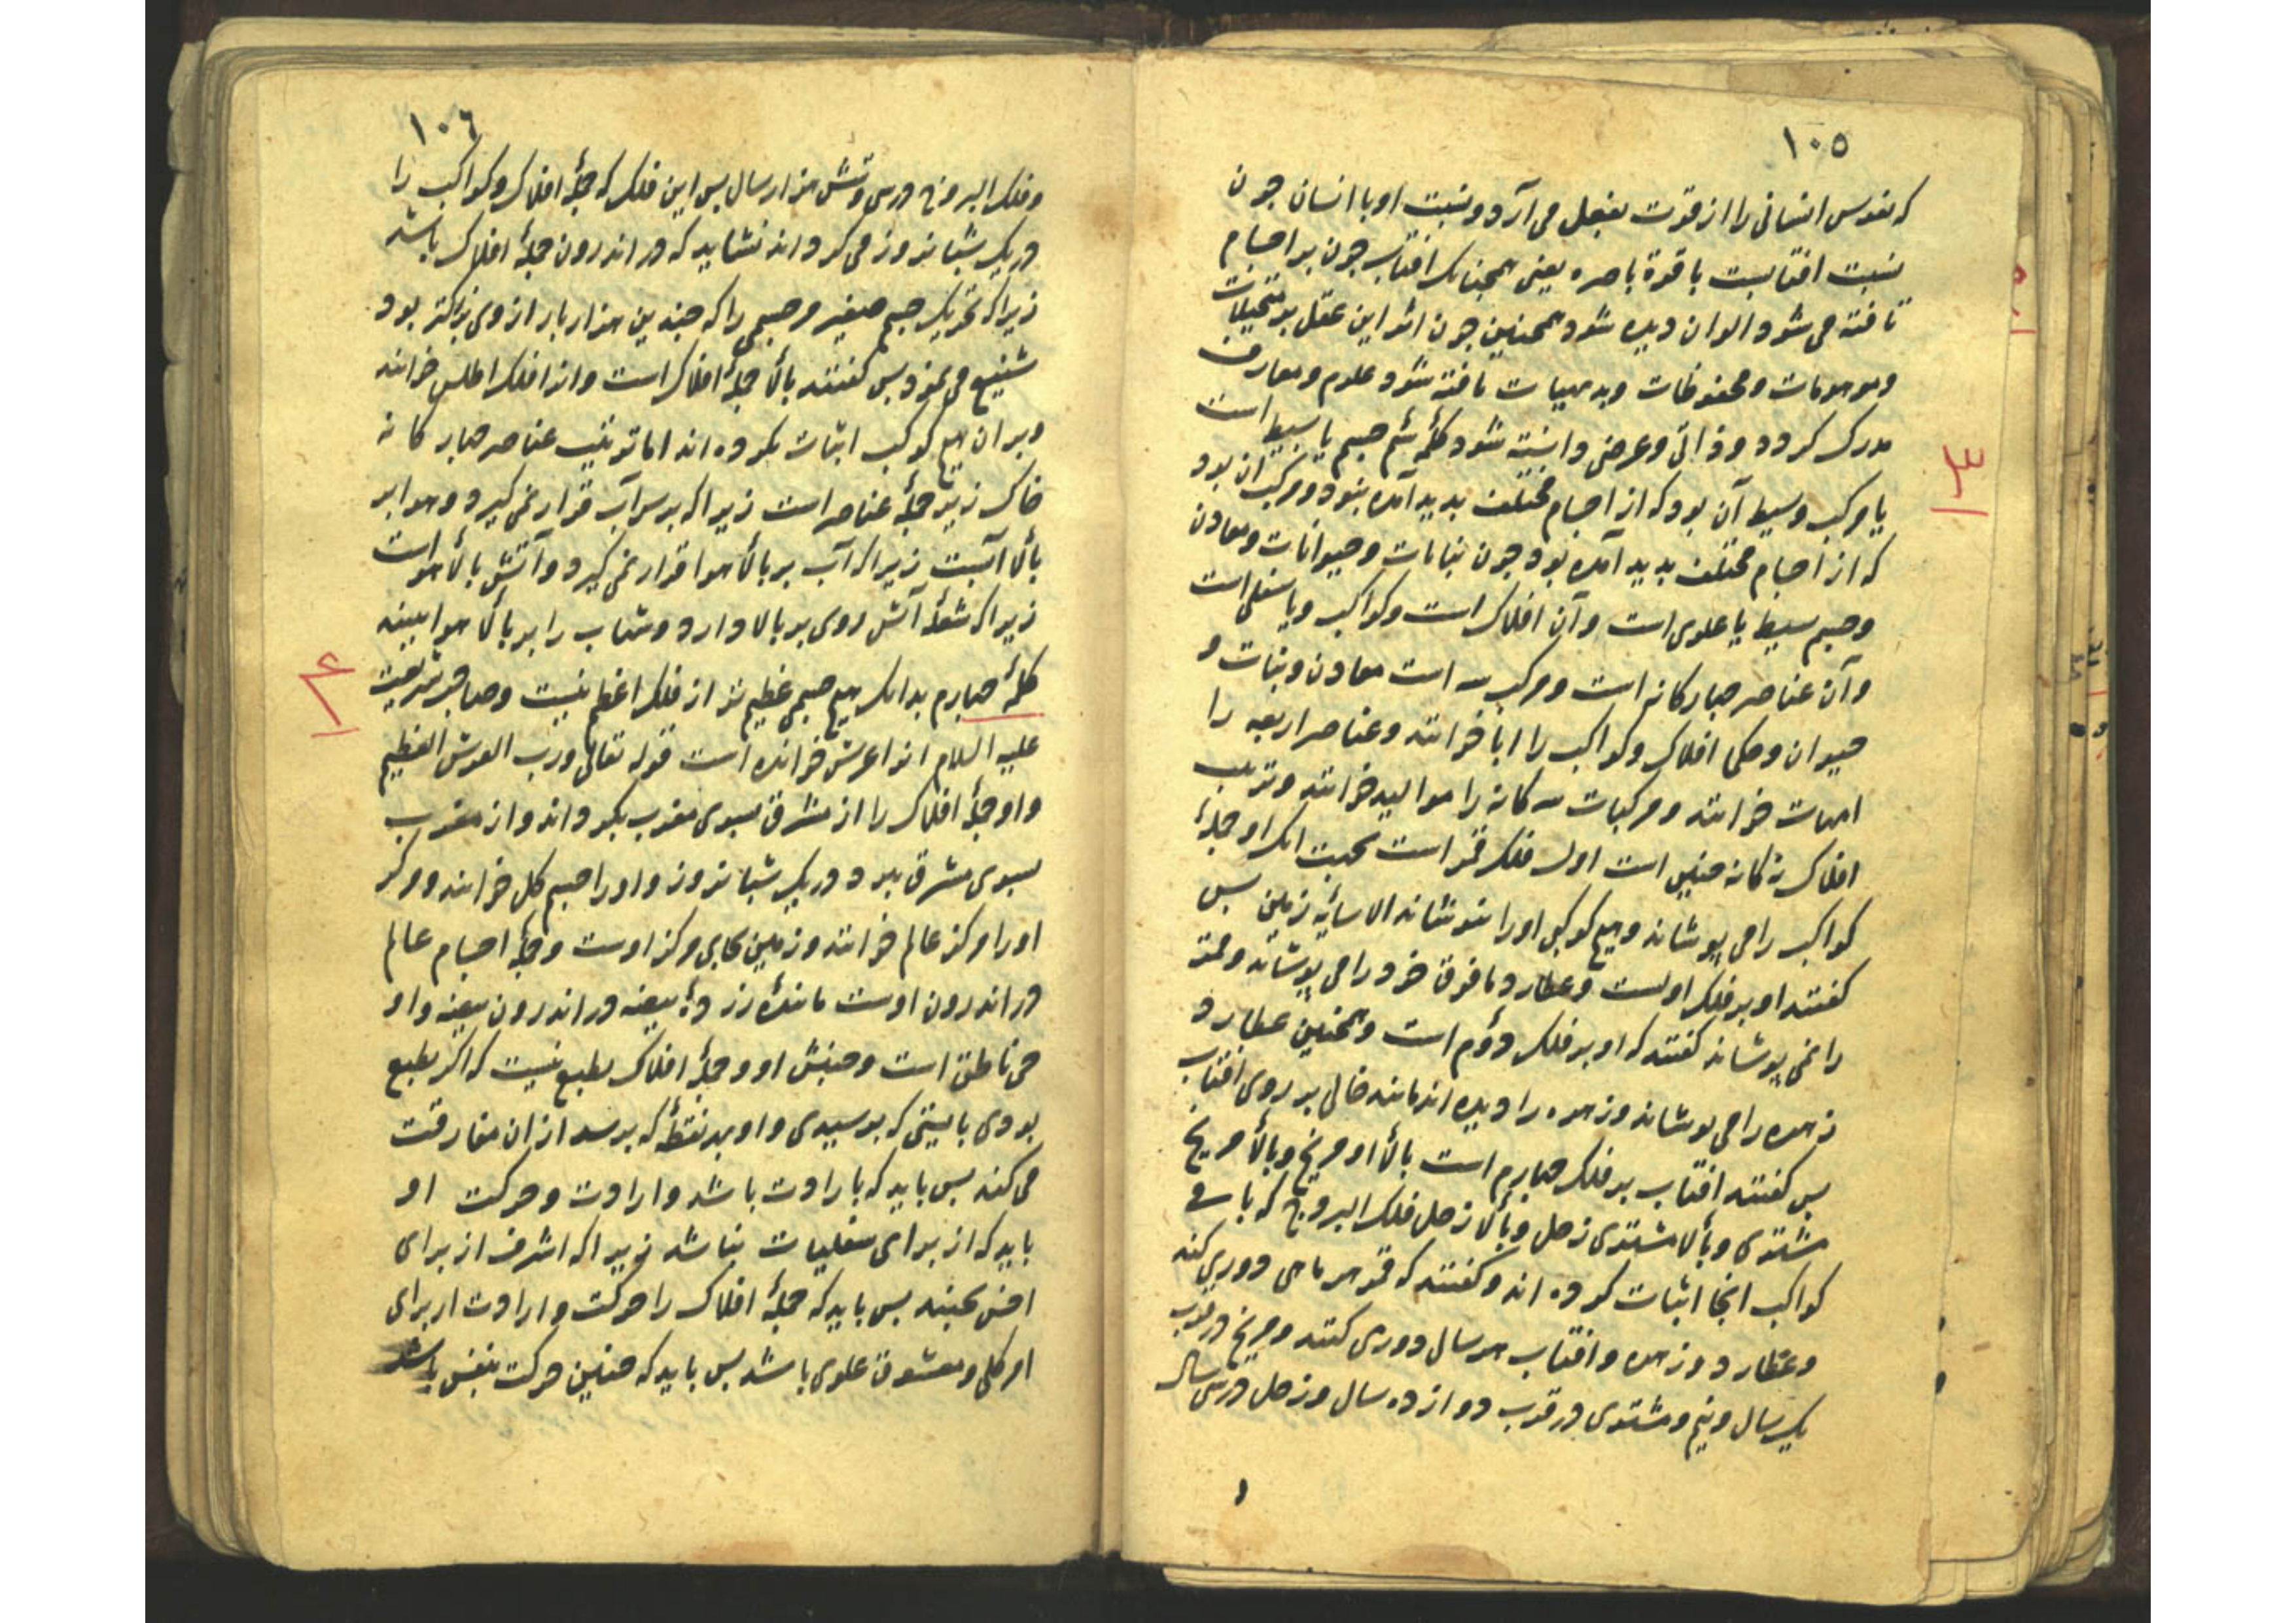 ١٠٥
که نفوس انسانی را از قوت بفعل می آرد و نسبت او با انسان چون
نسبت افتابست با قوة باصره یعنی همچنانک افتاب چون بر اجسام
تافته می شود الوان دیده شود همچنین چون اثر این عقل بر متخیلات
وموهومات ومحفوظات وبدیهیات تافته شود علوم ومعارف
مدرک کردد وذاتی وعرضی دانسته شود کلمۀ سیم جسم یا بسیط است
یا مرکب وبسیط آن بود که از اجسام مختلف پدید آمده نبود ومرکب ان بود
که از اجسام مختلف پدید آمده بود چون نباتات وحیوانات ومعادن
وجسم بسیط یا علوی است وآن افلاک است وکواکب ویا سفلی است
وآن عناصر چهارکانه است ومرکب سه است معادن ونبات و
حیوان وحکما افلاک وکواکب را ابا خوانند وعناصر اربعه را
امهات خوانند ومرکبات سه کانه را موالید خوانند وترتیب
افلاک نه کانه چنین است اول فلک قمر است بجهت انک او جملۀ
کواکب را می پوشاند وهیچ کوکبی اورا نپوشاند الا سایۀ زمین پس
کفتند او بر فلک اولست وعطارد مافوق خود را می پوشاند وقمر
را نمی پوشاند کفتند که او بر فلک دوم است وهمچنین عطارد
زهره را می پوشاند وزهره را دیده اند مانند خالی بر روی افتاب
پس کفتند افتاب بر فلک چهارم است بالاء او مریخ وبالاء مریخ
مشتری وبالاء مشتری زحل وبالاء زحل فلک البروج که باقی
کواکب انجا اثبات کرده اند وکفتند که قمر هر ماهی دوری کند
وعطارد وزهره وافتاب هر سال دوری کنند ومریخ در قرب
یک سال ونیم ومشتری در قرب دوازده سال وزحل در سی سال
١٠٦
وفلک البروج در سی وشش هزار سال پس این فلک که جملۀ افلاک وکواکب را
در یک شبانروز می کرداند نشاید که در اندرون جملۀ افلاک باشد
زیرا که تحریک جسم صغیر مر جسمی را که چندین هزار بار از وی بزرکتر بود
شنیع می نمود پس کفتند بالاء جملۀ افلاک است وانرا فلک اطلس خوانند
وبر ان هیچ کوکب اثبات نکرده اند اما ترتیب عناصر چهارکانه
خاک زیر جملۀ عناصر است زیرا که بر سر آب قرار نمی کیرد وهوا بر
بالاء آبست زیرا که آب بر بالاء هوا قرار نمی کیرد وآتش بالاء هواست
زیرا که شعلۀ آتش روی بر بالا دارد وشهاب را بر بالاء هوا بینند
کلمۀ چهارم بدانک هیچ جسمی عظیم تر از فلک اعظم نیست وصاحب شریعت
علیه السلام انرا عرش خوانده است قوله تعالی ورب العرش العظیم
واو جملۀ افلاک را از مشرق بسوی مغرب بکرداند واز مغرب
بسوی مشرق برد در یک شبانروز واورا جسم کل خوانند ومرکز
اورا مرکز عالم خوانند وزمین بجای مرکز اوست وجملۀ اجسام عالم
در اندرون اوست مانندۀ زردۀ بیضه در اندرون بیضه واو
حی ناطق است وجنبش او وجملۀ افلاک بطبع نیست که اکر بطبع
بودی بایستی که برسیدی واو بهر نقطۀ که برسد از ان مفارقت
می کند پس باید که بارادت باشد وارادت وحرکت او
باید که از برای سفلیات نباشد زیرا که اشرف از برای
اخس نجنبد پس باید که جملۀ افلاک را حرکت وارادت از برای
امر کلی ومعشوق علوی باشد پس باید که چنین حرکت بنفس باشد